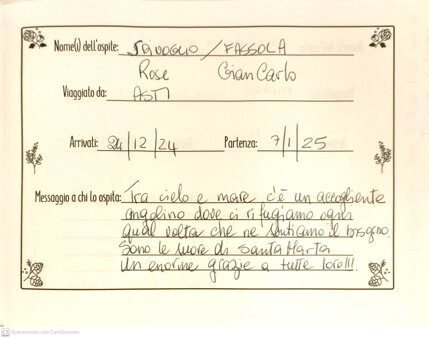 Nome(i) dell'ospite: / FASSOLA
Rose GianCarlo
Viaggiato da: ASTI
Arrivati: 24/12/24 Partenza: 7/1/25
Messaggio a chi lo ospita: Tra cielo e mare c'è un accogliente
angolino dove ci rifugiamo ogni
qual volta che ne sentiamo il bisogno.
Sono le suore di Santa Marta
Un enorme grazie a tutte loro!!!
CS Scansionato con CamScanner